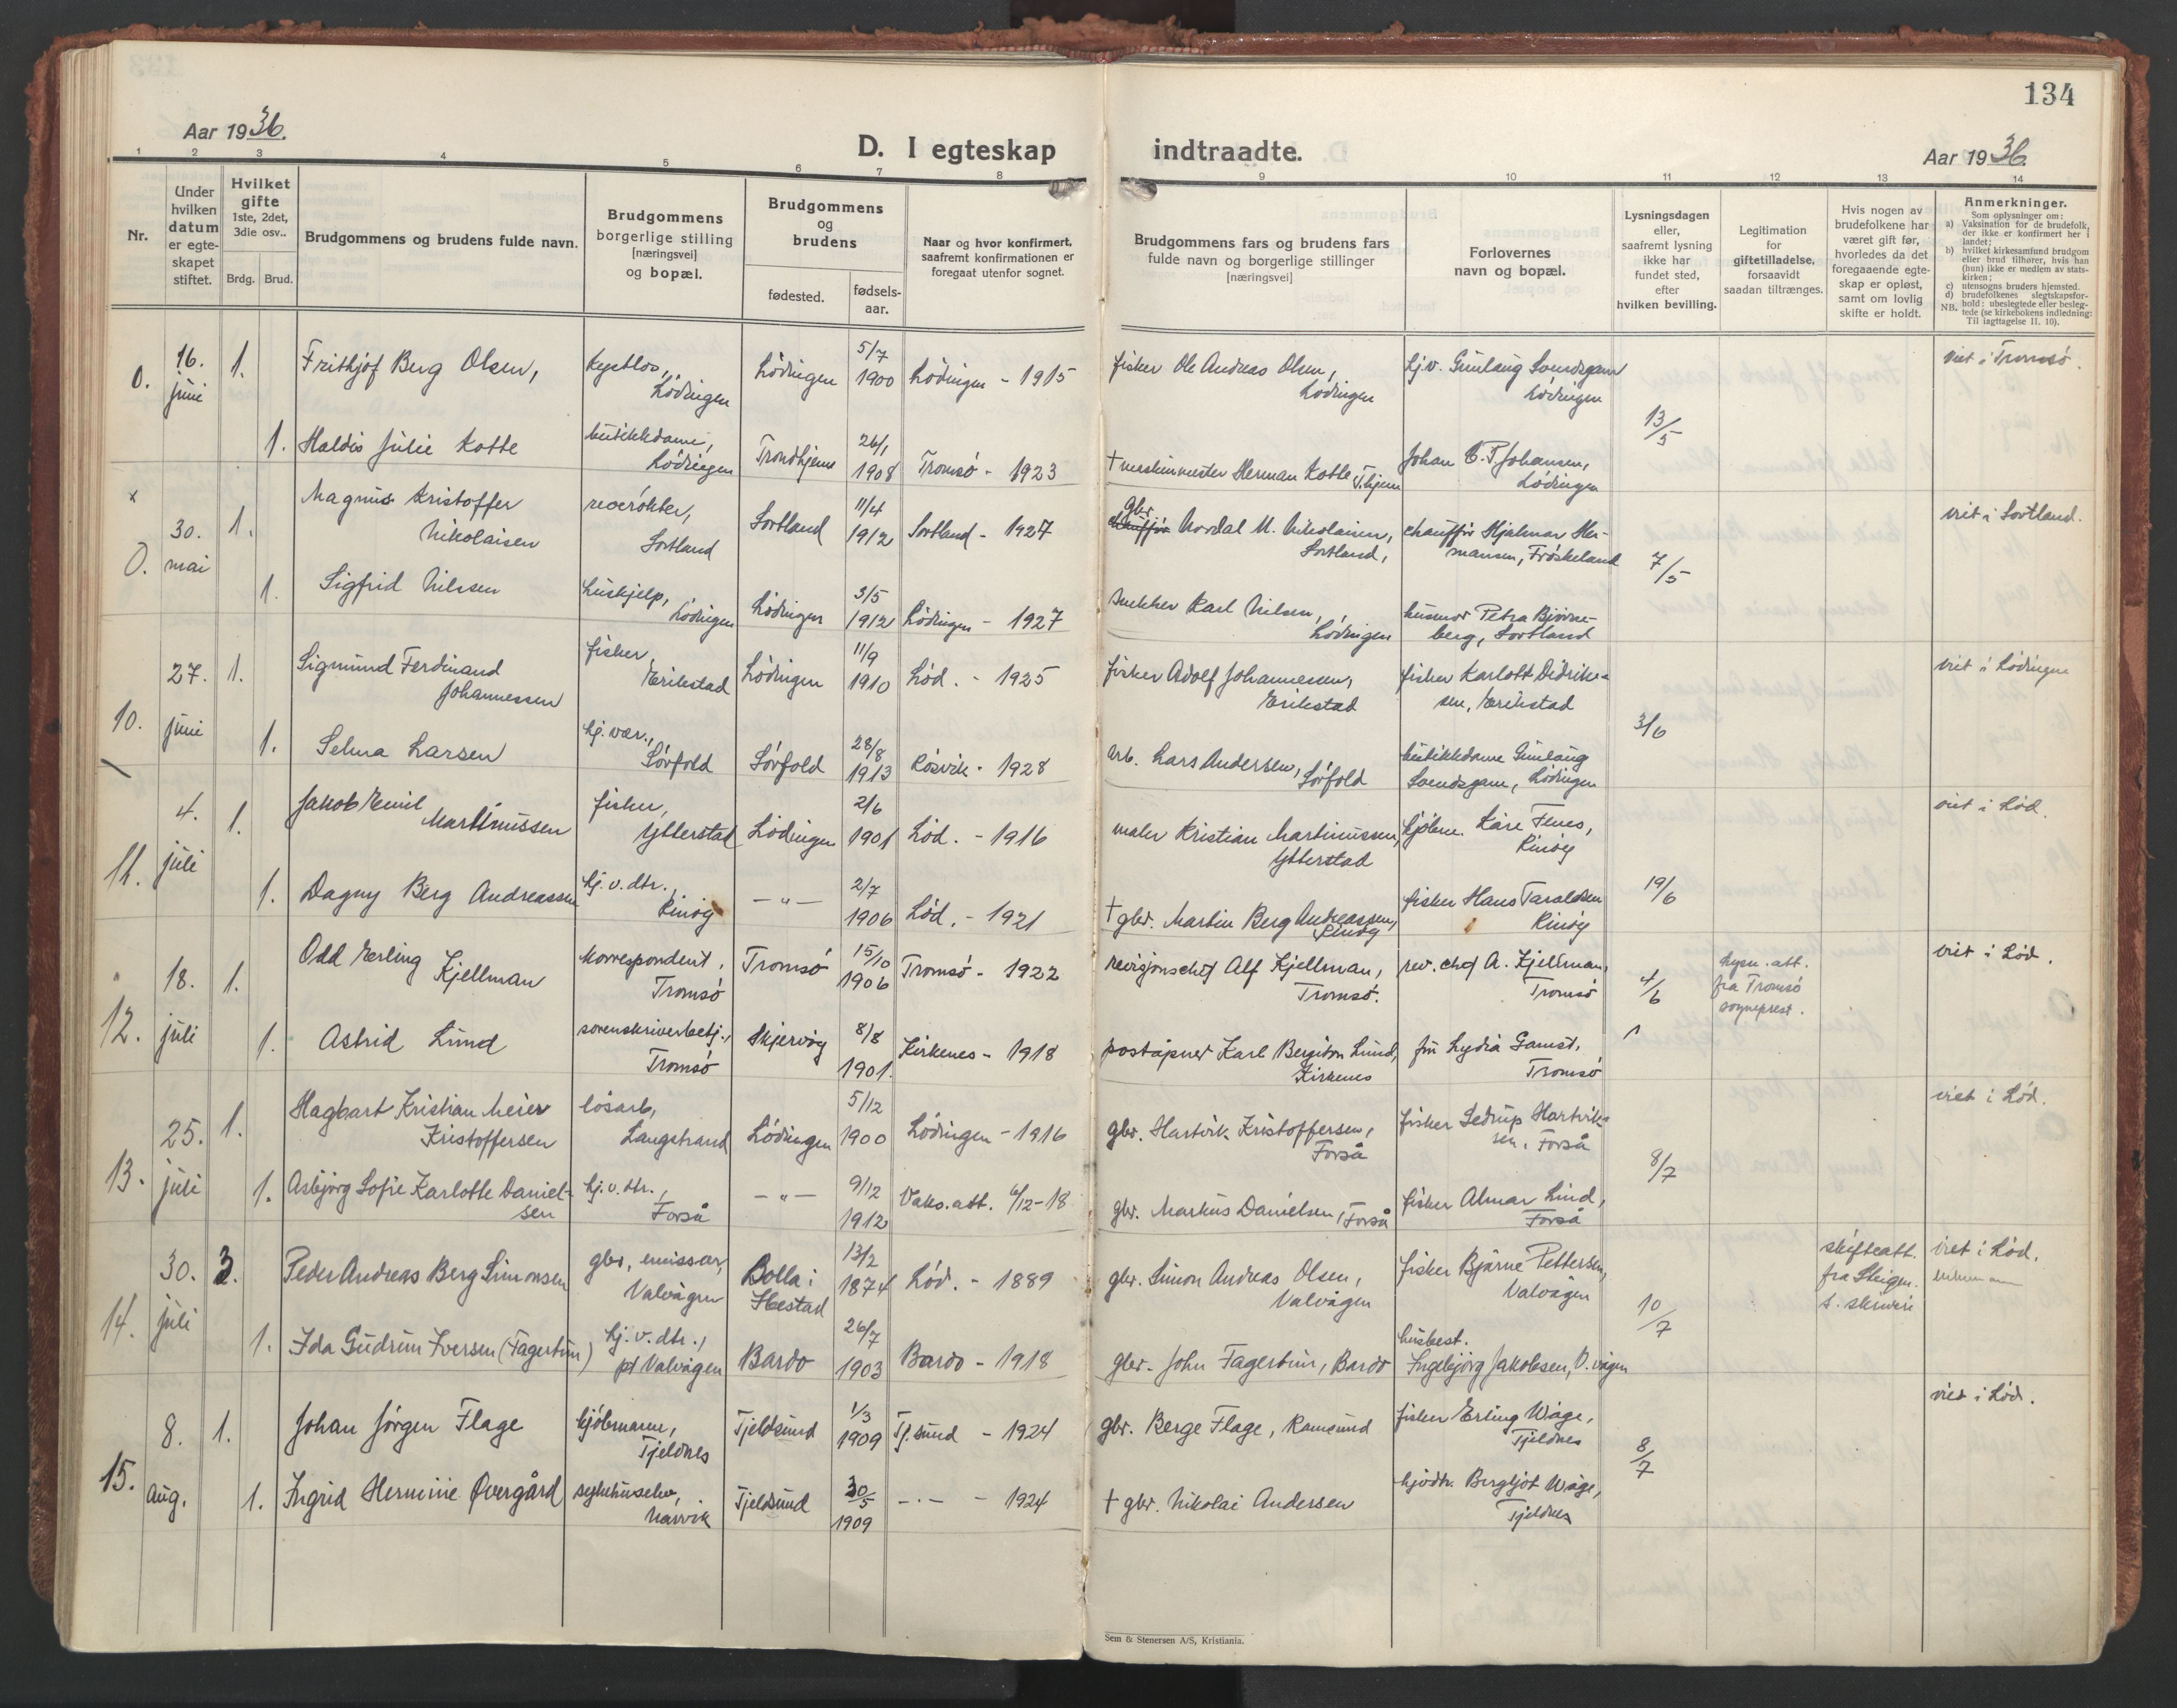 134
Aar 1936.
D. I egteskap indtraadte.
Aar 1936
1 2 3 4 5 6 7 8 9 10 11 12 13 14
Nr.
Under hvilken datum er egte-skapet stiftet.
Hvilket gifte 1ste, 2det, 3die osv..
Brdg. Brud.
Brudgommens og brudens fulde navn.
Brudgommens borgerlige stilling [næringsvei] og bopæl.
Brudgommens og brudens
fødested.
fødsels-aar.
Naar og hvor konfirmert, saafremt konfirmationen er foregaat utenfor sognet.
Brudgommens fars og brudens fars fulde navn og borgerlige stillinger [næringsvei]
Forlovernes navn og bopæl.
Lysningsdagen eller, saafremt lysning ikke har fundet sted, efter hvilken bevilling.
Legitimation for giftetilladelse, forsaavidt saadan tiltrænges.
Hvis nogen av brudefolkene har været gift før, hvorledes da det foregaaende egte-skap er opløst, samt om lovlig skifte er holdt.
Anmerkninger.
Som oplysninger om:
a) Vaksination for de brudefolk, der ikke er konfirmert her i landet;
b) hvilket kirkesamfund brudgom eller brud tilhører, hvis han (hun) ikke er medlem av stats-kirken;
c) utensogns bruders hjemsted.
d) brudefolkenes slegtskapsfor-hold: ubeslegtede eller besleg-tede (se kirkebokens indledning:
NB. Til iagttagelse II. 10).
0. 16. juni 1. Frithjof Berg Olsen, Lödingen Lödingen 5/7 1900 Lödingen - 1915 fisker Ole Andreas Olsen, Lödingen hj.v. Gunlaug Lödingen viet i Tromsö.
1. Haldis Julie Kotte butikkdame, Lödingen Trondhjem 26/1 1908 Tromsö - 1923 † maskinmester Herman Kotte T.hjem Johan Johansen, Lödingen 13/5
x 0. 30. mai 1. Magnus Kristoffer Nikolaisen reverökter, Sortland Sortland 11/4 1912 Sortland - 1927 gbr. chaufför Nordal M. Nikolaisen, Sortland, chaufför Hjalmar Her-mansen, Fröskeland viet i Sortland.
1. Sigfrid Nilsen hushjelp, Lödingen Lödingen 3/5 1912 Lödingen - 1927 snekker Karl Nilsen, Lödingen husmor Petra Bjørne-berg, Sortland 7/5
10. 27. juni 1. Sigmund Ferdinand Johannessen fisker, Erikstad Lödingen 11/9 1910 Löd. - 1925 fisker Adolf Johannessen, Erikstad fisker Karlott Didrik-sen, Erikstad viet i Lödingen
1. Selma Larsen hj. vær., Sörfold Sörfold 28/8 1913 Rösvik - 1928 arb. Lars Andersen, Sörfold butikkdame Gunlaug Lödingen 3/6
11. 4. juli 1. Jakob Emil Martinussen fisker, Ytterstad Lödingen 2/6 1901 Löd. - 1916 maler Kristian Martinussen, Ytterstad kjöbm. Kåre Rinöy viet i Löd.
1. Dagny Berg Andreassen hj. v. dtr., Rinöy — " — 2/7 1906 Löd. - 1921 † gbr. Martin Berg Andreassen, Rinöy fisker Hans Taraldsen Rinöy 19/6
12. 18. juli 1. Odd Erling Kjellman korrespondent, Tromsö Tromsö 15/10 1906 Tromsö - 1922 revisjonschef Alf Kjellman, Tromsö. rev. chef A. Kjellman, Tromsö 4/6 lysn. att. fra Tromsö sogneprest. viet i Löd.
1. Astrid Lund sorenskriverbetj., Tromsö Skjervöy 8/8 1901. Kirkenes - 1918 poståpner Karl Bergiton Lund, Kirkenes frk Lydia Gamst, Tromsö
13. 25. juli 1. Hagbart Kristian Meier Kristoffersen lösarb, Langstrand Lödingen 5/12 1900 Lödingen - 1916 gbr. Hartvik Kristoffersen, Forså fisker Sedrup Hartvik-sen, Forså viet i Löd.
1. Asbjørg Sofie Karlotte Daniel-sen hj. v. dtr., Forså — " — 9/12 1912 Vaks. att. 6/12-18 gbr. Markus Danielsen, Forså fisker Almar Lind, Forså 8/7
14. 30. juli 3. Peder Andreas Berg Simonsen gbr, emissær, Valvågen Bolla i Ibestad 13/2 1874 Löd. - 1889 gbr. Simon Andreas Olsen, Valvågen fisker Bjarne Pettersen, Valvågen skifteatt. fra Steigen s. skriveri viet i Löd. enkemann
1. Ida Gudrun Iversen (Fagertun) hj. v. dtr., pt Valvågen Bardo 26/7 1903 Bardo - 1918 gbr. John Fagertun, Bardo husbest. Ingebjörg Jakobsen, V.vågen 10/7
15. 8. aug. 1. Johan Jörgen Flage kjöbmann, Tjeldnes Tjeldsund 1/3 1909 Tj.sund - 1924 gbr. Berge Flage, Ramsund fisker Erling Wåge, Tjeldnes viet i Löd.
1. Ingrid Hermine Øvergård sykehuselev, Narvik Tjeldsund 30/5 1909 — . — - 1924 † gbr. Nikolai Andersen Bergljot Wåge, Tjeldnes 8/7
Sem & Stenersen A/S, Kristiania.